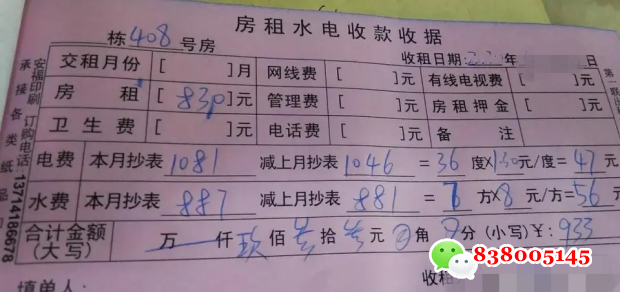 房租水电收款收据
栋 408 号房 收租日期: 年 日
交租月份 [ ]月 网线费 [ ]元 有线电视费 [ ]元
房租 [830]元 管理费 [ ]元 房租押金 [ ]元
卫生费 [ ]元 电话费 [ ]元 备注
电费 本月抄表 1081 减上月抄表 1046 = 36 度×1.30元/度= 47 元
水费 本月抄表 887 减上月抄表 881 = 7 方×8元/方=56元
合计金额(大写) 万 仟 玖 佰 叁 拾 叁 元 0 角 0 分 (小写)¥: 933
填单人: 收租
安福印刷 订购电话:13714186678
承接各类纸品
第一联
838005145